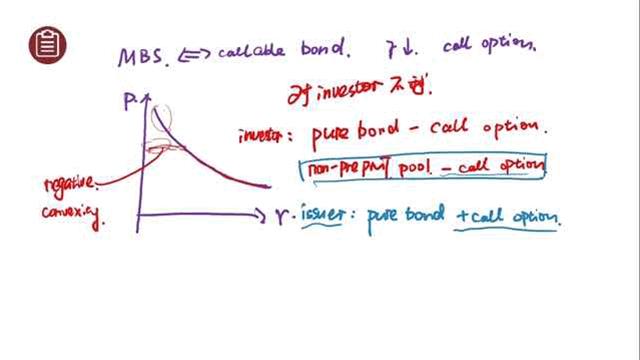 MBS. <=> callable bond. r↓. call option.
对 investor 不利.
P.
investor: pure bond - call option.
non-prepmt pool - call option
negative
convexity.
r. issuer: pure bond + call option.